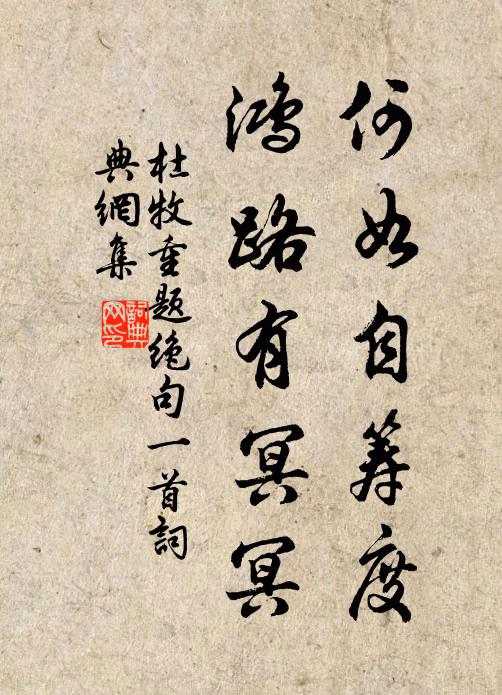 何如自筹度
鸿路有冥冥
杜牧重题绝句一首詞
典網集
詞典
网印